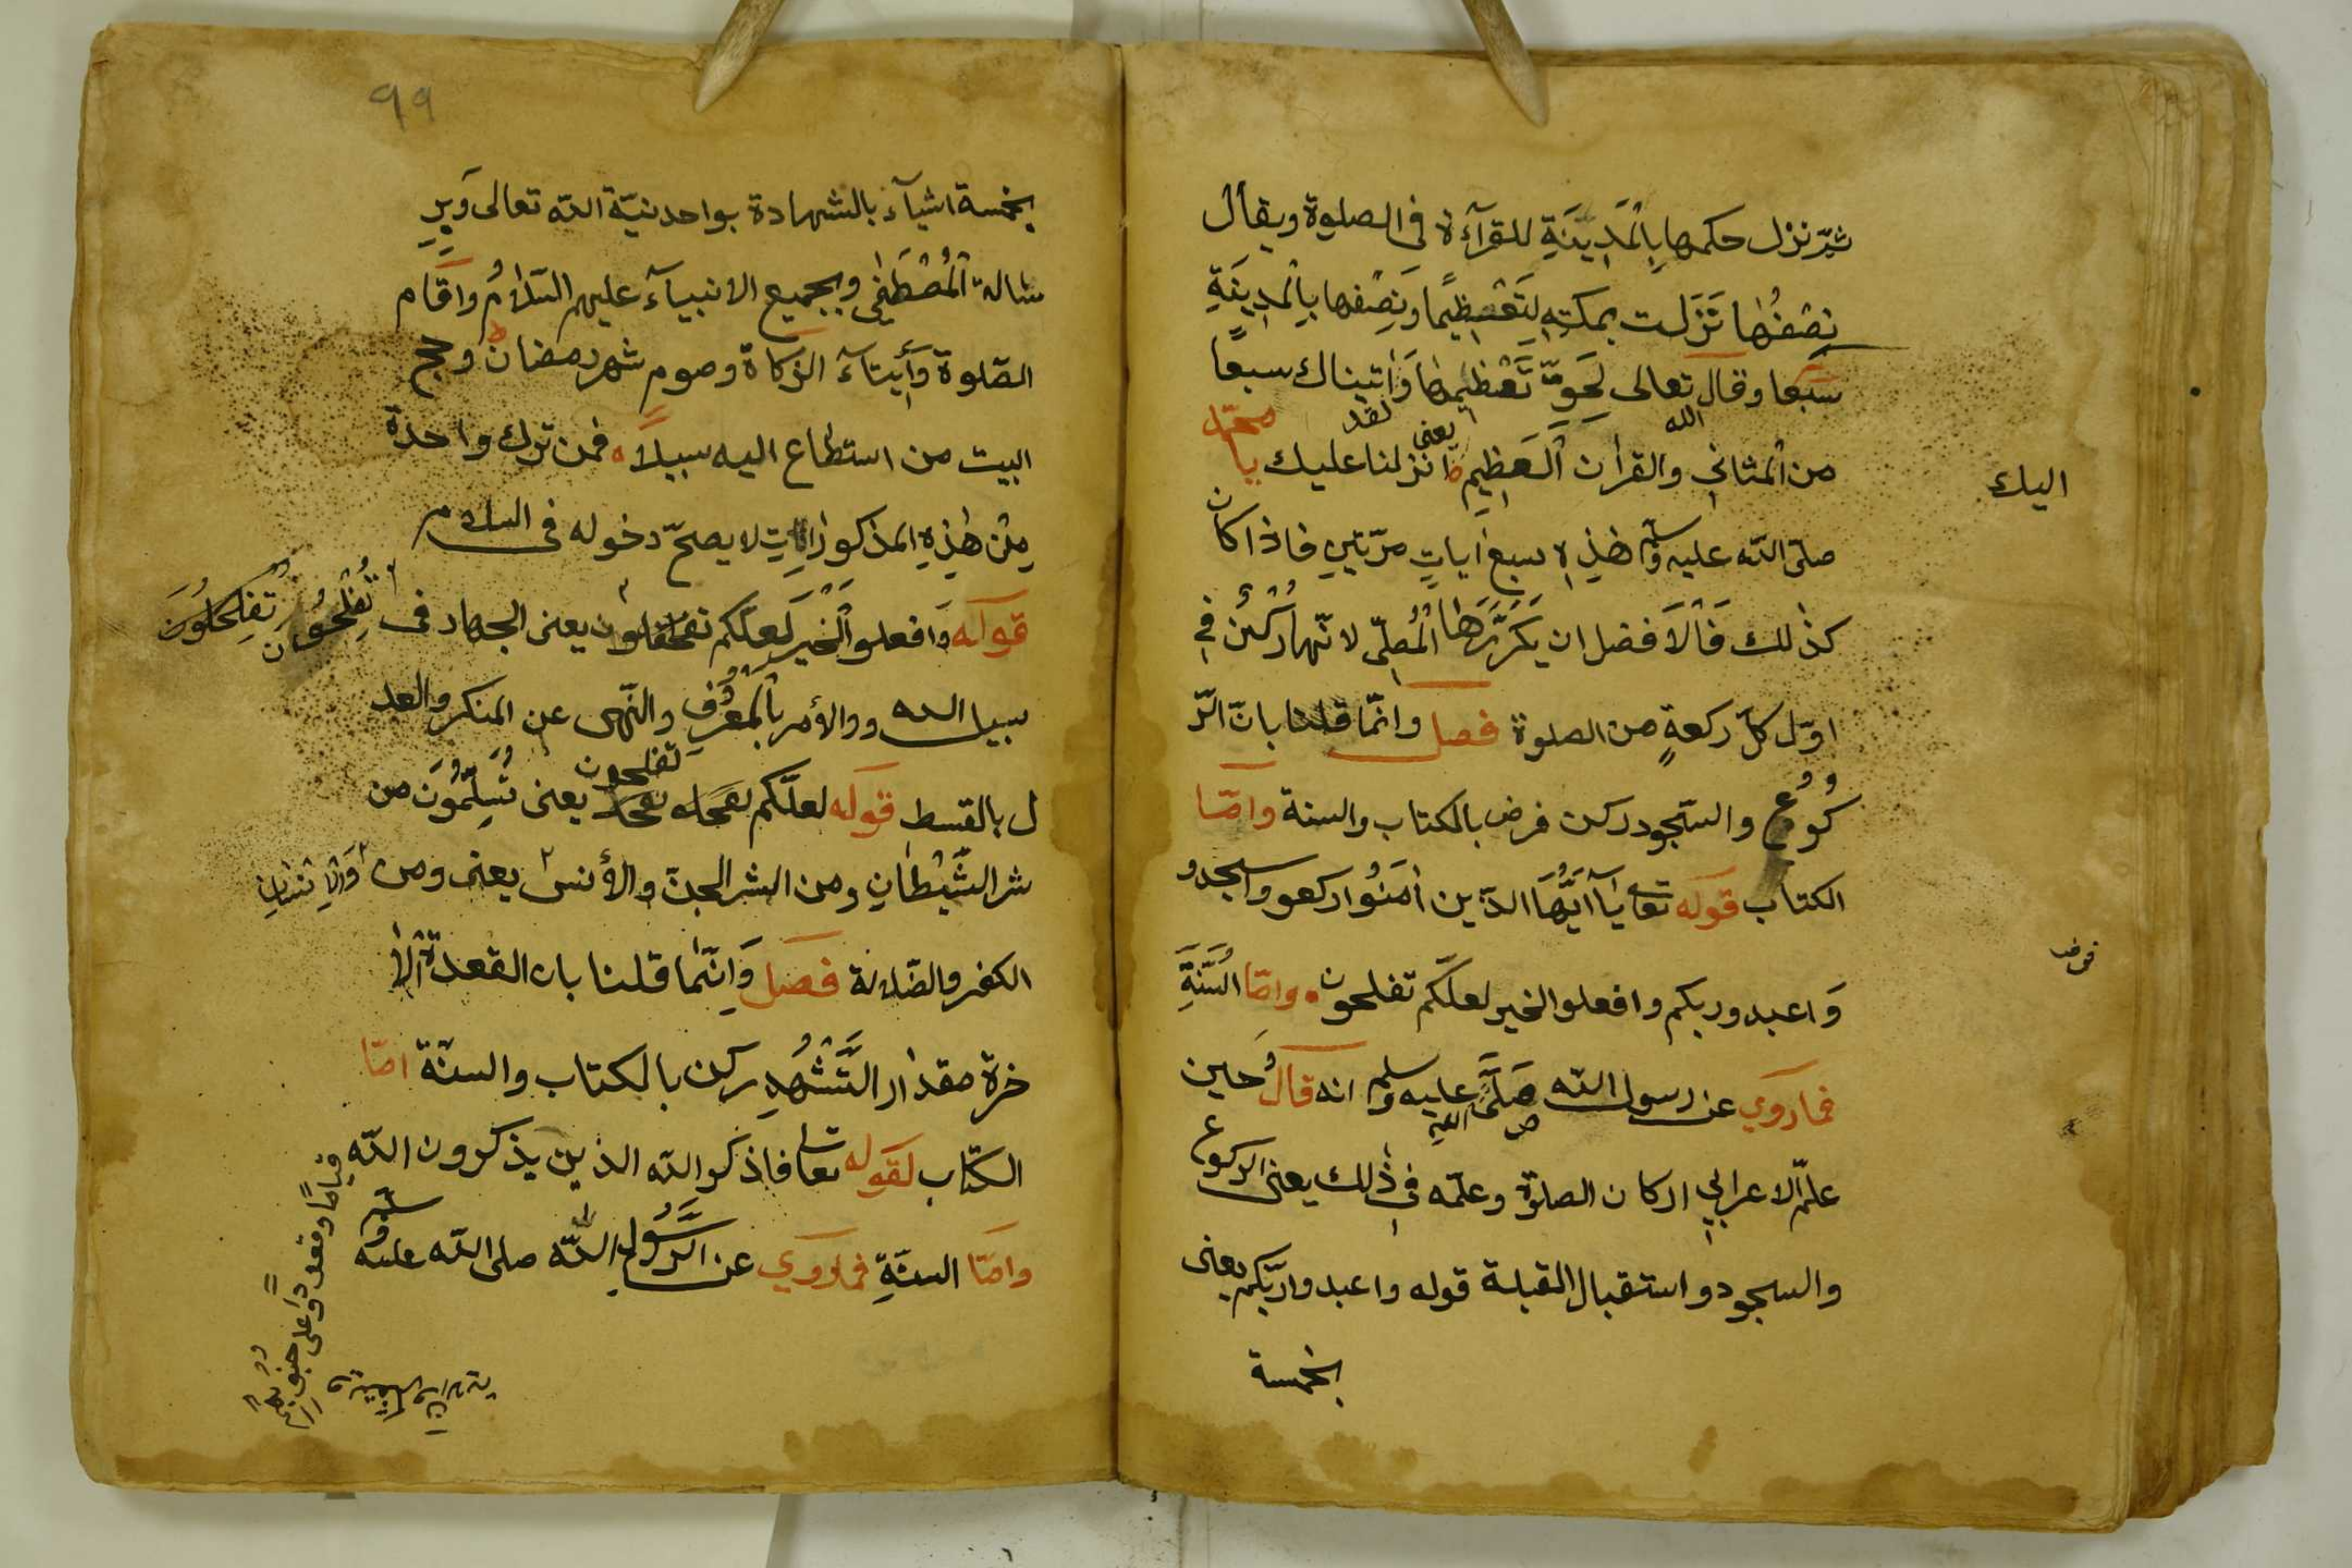 ثم نزل حكمها بِالْمَدِيْنَةِ للقرآءة فى الصلوة ويقال
نِصْفُهَا نَزَلَت بمكته لِتَعْظِيمًا وَنِصْفها بِالْمدِينَةِ
سَبْعا وقال تعالى لِحَقِّ تَعْظِيمِهَا وَاٰتيناك سبعًا
من المثانى والقراٰن الْعَظِيمِ يعنى انزلنا عليك يا محمّد
اليك
صلى اللّه عليه وسلم هٰذِهِ سبع اٰياتٍ مرّتينِ فاذا كان
كذٰلك فَالْاَفضل ان يَكَرَّرَهَا الْمُصلّى لانّها رُكْنٌ فِى
اوّل كلّ ركعةٍ من الصلوة فصل وانّما قلنا بانّ الرّ
كُوُعُ والسّجود ركن فرض بالكتاب والسنة وامّا
الكتاب قوله تعا يَآ اَيُّهَا الذّين اٰمَنُوا اركعو واسجدو
وَاعبدو ربكم وافعلو الخير لعلّكم تفلحون وامّا السُّنَّةِ
فرض
فما روي عن رسول اللّه صَلَّى اللّه عليه وسلم انه قال حين
علّم الاعرابي اركان الصلوٰة وعلّمه فى ذٰلك يعنى الركوع
والسجود واستقبال القبلة قوله واعبدوا ربّكم يعنى
بخمسة
99
بخمسة اشيآء بالشهادة بواحدنيّة اللّه تعالى وَبِرِ
سالة الْمُصْطَفٰى وبجميع الانبيآء عليهم السّلامُ واقَام
الصّلوة وَاِيتآء الزكاة وصوم شهر رمضان وحج
البيت من استطاع اليه سبيلاً فمن ترك واحدة
مِنْ هٰذِهِ المذكوراتِ لا يصحّ دخوله فى السلام
قوله وَافعلو الْخَيْرَ لعلّكم يعنى الجهاد فى
تُفْلِحُون تُفِلحُلوُنَ
سبيل اللّه ووالأمر بالْمَعْرُفِ والنّهى عن المنكر والعد
ل بالقسط قوله لعلّكم تفلحون يعنى تُسَلِّمُوُنَ من
شر الشَّيْطَانِ ومن الشر الجنّ والأنس يعنى ومن
الكفر والضّلالة فصل وَانّما قلنا بان القعدة الاٰ
خرة مقدار التَّشْهُدِ ركن بالكتاب والسنّة امّا
الكتّاب لقوله تعا فاذكرو اللّه الذين يذكرون اللّه
قيامًا وقعودًا وعلى جنوبهم
وامّا السنّةِ فما روي عن الرَّسُولِ اللّه صلى اللّه عليه وسلم